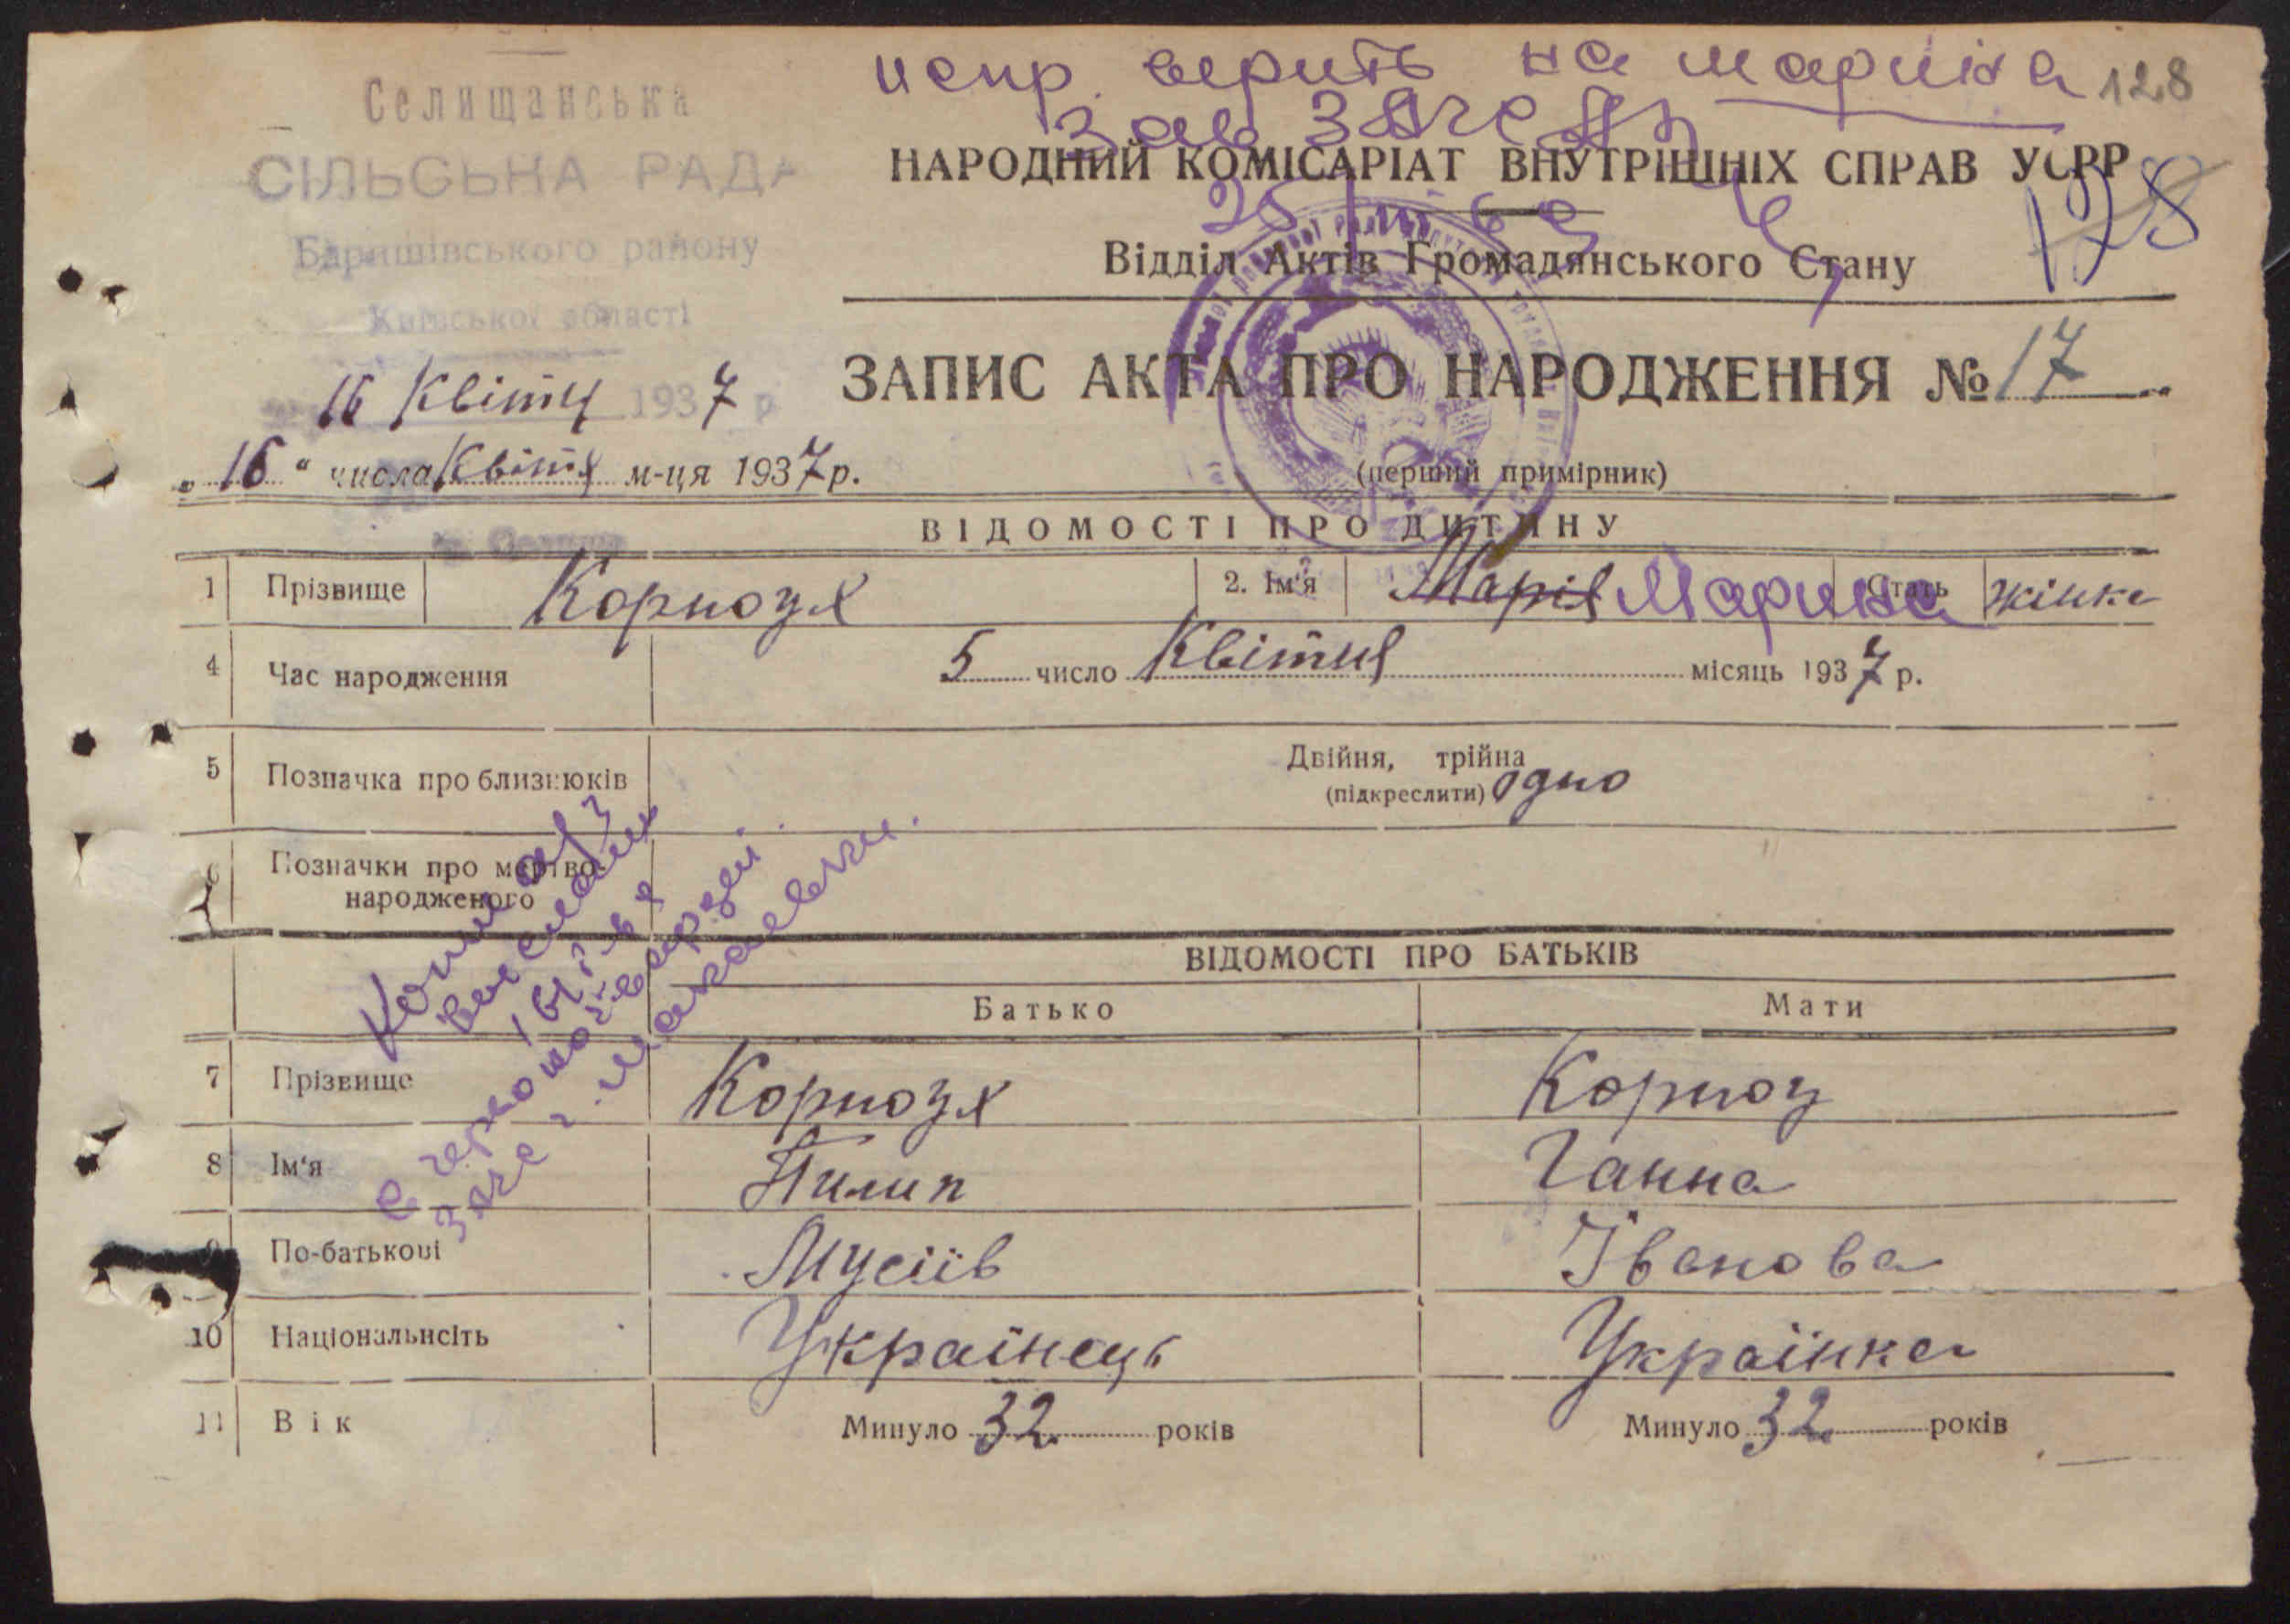 испр. верить на Марина 128
Зав ЗАГС
Селищанська
СІЛЬСЬКА РАДА
Баришівського району
Київської області
16 Квітня 1937 р
НАРОДНИЙ КОМІСАРІАТ ВНУТРІШНІХ СПРАВ УСРР
128
Відділ Актів Громадянського Стану
ЗАПИС АКТА ПРО НАРОДЖЕННЯ № 17
„16" числа Квітня м-ця 1937 р.
(перший примірник)
ВІДОМОСТІ ПРО ДИТИНУ
1 Прізвище Корноух 2. Ім'я Марія Марина Стать жінка
4 Час народження 5 число Квітня місяць 1937 р.
5 Позначка про близнюків Двійня, трійна
(підкреслити) одно
6 Позначки про мертво-
народженого
ВІДОМОСТІ ПРО БАТЬКІВ
Батько Мати
7 Прізвище Корноух Корноу
8 Ім'я Пилип Ганна
9 По-батькові Мусіїв Іванова
10 Національнсіть Українець Українка
11 Вік Минуло 32 років Минуло 32 років